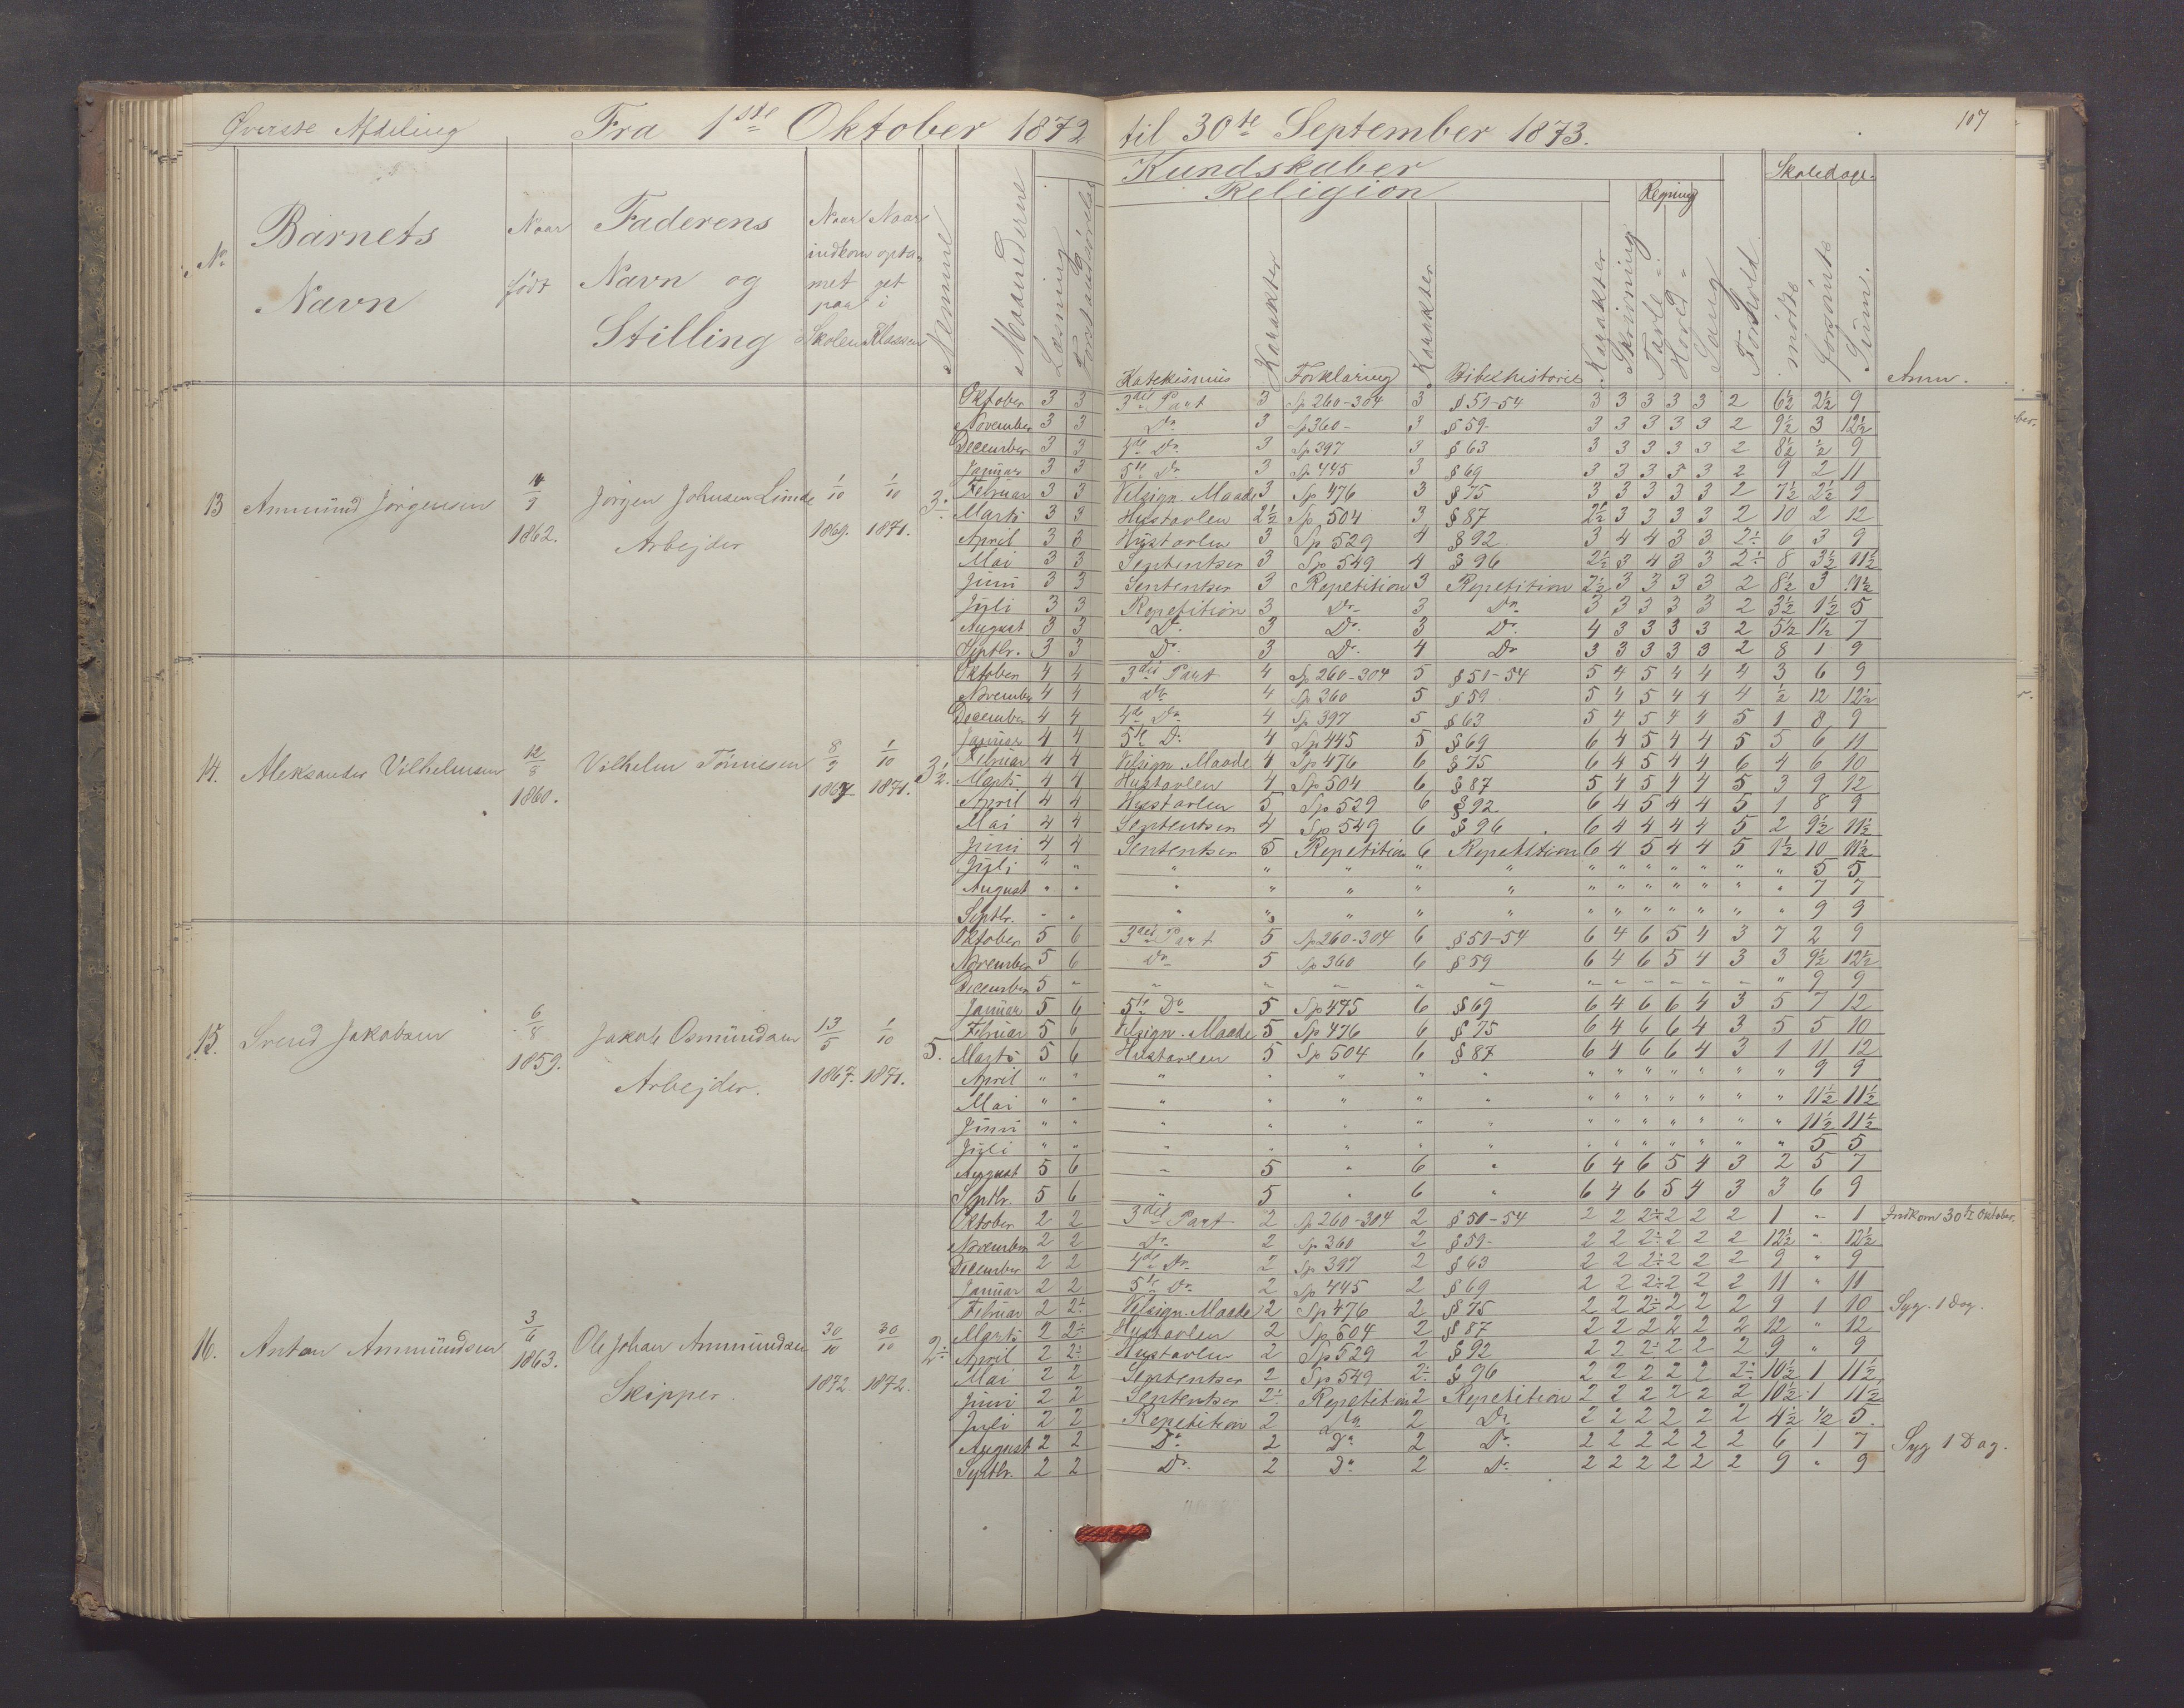 Øverste Afdeling Fra 1ste Oktober 1872 til 30te September 1873. 107
Kundskaber
Religion Regning Skoledage.
No Barnets Navn Naar født Faderens Navn og Stilling Naar indkommet paa Skolen Naar optaget i Klassen Nemme Maanederne Læsning Forstandsøvelse Katekismus Karakter Forklaring Karakter Bibelhistorie Karakter Skrivning Tavle Hoved Sang Forhold mødte forsømte Sum. Anm.
13 Ammund Jörgensen 14/9 1862. Jörgen Johnsen Linde Arbejder 1/10 1869. 1/10 1871. 3÷
Oktober 3 3 3die Part 3 Sp 260-304 3 § 51-54 3 3 3 3 3 2 6½ 2½ 9
November 3 3 Do 3 Sp 360- 3 § 59- 3 3 3 3 3 2 9½ 3 12½
December 3 3 4de Do 3 Sp 397 3 § 63 3 3 3 3 3 2 8½ ½ 9
Januar 3 3 5te Do 3 Sp 445 3 § 69 3 3 3 3 3 2 9 2 11
Februar 3 3 Velsign. Maade 3 Sp 476 3 § 75 3 3 3 3 3 2 7½ 2½ 9
Marts 3 3 Hustavlen 2½ Sp 504 3 § 87 2½ 3 3 3 3 2 10 2 12
April 3 3 Hustavlen 3 Sp 529 4 § 92 3 4 4 3 3 2÷ 6 3 9
Mai 3 3 Sententser 3 Sp 549 4 § 96 2½ 3 4 3 3 2÷ 8 3½ 11½
Juni 3 3 Sententser 3 Repetition 3 Repetition 2½ 3 3 3 3 2 8½ 3 11½
Juli 3 3 Repetition 3 Do 3 Do 3 3 3 3 3 2 3½ 1½ 5
August 3 3 Do 3 Do 3 Do 4 3 3 3 3 2 5½ 1½ 7
Septbr. 3 3 Do 3 Do 4 Do 3 3 3 3 3 2 8 1 9
14. Aleksander Vilhelmsen 12/8 1860. Vilhelm Tönnesen 8/9 1867 1/10 1871. 3½.
Oktober 4 4 3die Part 4 Sp 260-304 5 § 51-54 5 4 5 4 4 4 3 6 9
November 4 4 Do 4 Sp 360 5 § 59 5 4 5 4 4 4 ½ 12 12½
December 4 4 4de Do 4 Sp 397 5 § 63 5 4 5 4 4 5 1 8 9
Januar 4 4 5te Do 4 Sp 445 5 § 69 6 4 5 4 4 5 5 6 11
Februar 4 4 Velsign. Maade 4 Sp 476 6 § 75 6 4 5 4 4 6 4 6 10
Marts 4 4 Hustavlen 4 Sp 504 6 § 87 5 4 5 4 4 5 3 9 12
April 4 4 Hustavlen 5 Sp 529 6 § 92 6 4 5 4 4 5 1 8 9
Mai 4 4 Sententser 4 Sp 549 6 § 96 6 4 4 4 4 5 2 9½ 11½
Juni 4 4 Sententser 5 Repetition 6 Repetition 6 4 5 4 4 5 1½ 10 11½
Juli " " " " " " " " " " " " " " 5 5
August " " " " " " " " " " " " " " 7 7
Septbr. " " " " " " " " " " " " " " 9 9
15. Svend Jakobsen 6/8 1859. Jakob Osmundsen Arbejder. 13/5 1867. 1/10 1871. 5.
Oktober 5 6 3die Part 5 Sp 260-304 6 § 51-54 6 4 6 5 4 3 7 2 9
November 5 6 Do 5 Sp 360 6 § 59 6 4 6 5 4 3 3 9½ 12½
December 5 " " " " " " " " " " " " " 9 9
Januar 5 6 5te Do 5 Sp 445 6 § 69 6 4 6 6 4 3 5 7 12
Februar 5 6 Velsign. Maade 5 Sp 476 6 § 75 6 4 6 6 4 3 5 5 10
Marts 5 6 Hustavlen 5 Sp 504 6 § 87 6 4 6 6 4 3 1 11 12
April " " " " " " " " " " " " " " 9 9
Mai " " " " " " " " " " " " " " 11½ 11½
Juni " " " " " " " " " " " " " " 11½ 11½
Juli " " " " " " " " " " " " " " 5 5
August 5 6 " 5 " 6 " 6 4 6 5 4 3 2 5 7
Septbr. 5 6 " 5 " 6 " 6 4 6 5 4 3 3 6 9
16. Anton Ammundsen 3/6 1863. Ole Johan Ammundsen Skipper. 30/10 1872 30/10 1872. 2÷
Oktober 2 2 3die Part 2 Sp 260-304 2 § 50-54 2 2 2÷ 2 2 2 1 " 1 Indkom 30te Oktober.
November 2 2 Do 2 Sp 360 2 § 59- 2 2 2÷ 2 2 2 12½ " 12½
December 2 2 4de Do 2 Sp 397 2 § 63 2 2 2÷ 2 2 2 9 " 9
Januar 2 2 5te Do 2 Sp 445 2 § 69 2 2 2÷ 2 2 2 11 " 11
Februar 2 2÷ Velsign. Maade 2 Sp 476 2 § 75 2 2 2÷ 2 2 2 9 1 10 Syg. 1 Dag.
Marts 2 2÷ Hustavlen 2 Sp 504 2 § 87 2 2 2 2 2 2 12 " 12
April 2 2÷ Hustavlen 2 Sp 529 2 § 92 2 2 2÷ 2 2 2 9 " 9
Mai 2 2 Sententser 2 Sp 549 2÷ § 96 2 2 2 2 2 2÷ 10½ 1 11½
Juni 2 2 Sententser 2÷ Repetition 2 Repetition 2 2 2 2 2 2 10½ 1 11½
Juli 2 2 Repetition 2 Do 2 Do 2 2 2 2 2 2 4½ ½ 5.
August 2 2 Do 2 Do 2 Do 2 2 2 2 2 2 6 1 7 Syg 1 Dag.
Septbr. 2 2 Do 2 Do 2 Do 2 2 2 2 2 2 9 " 9